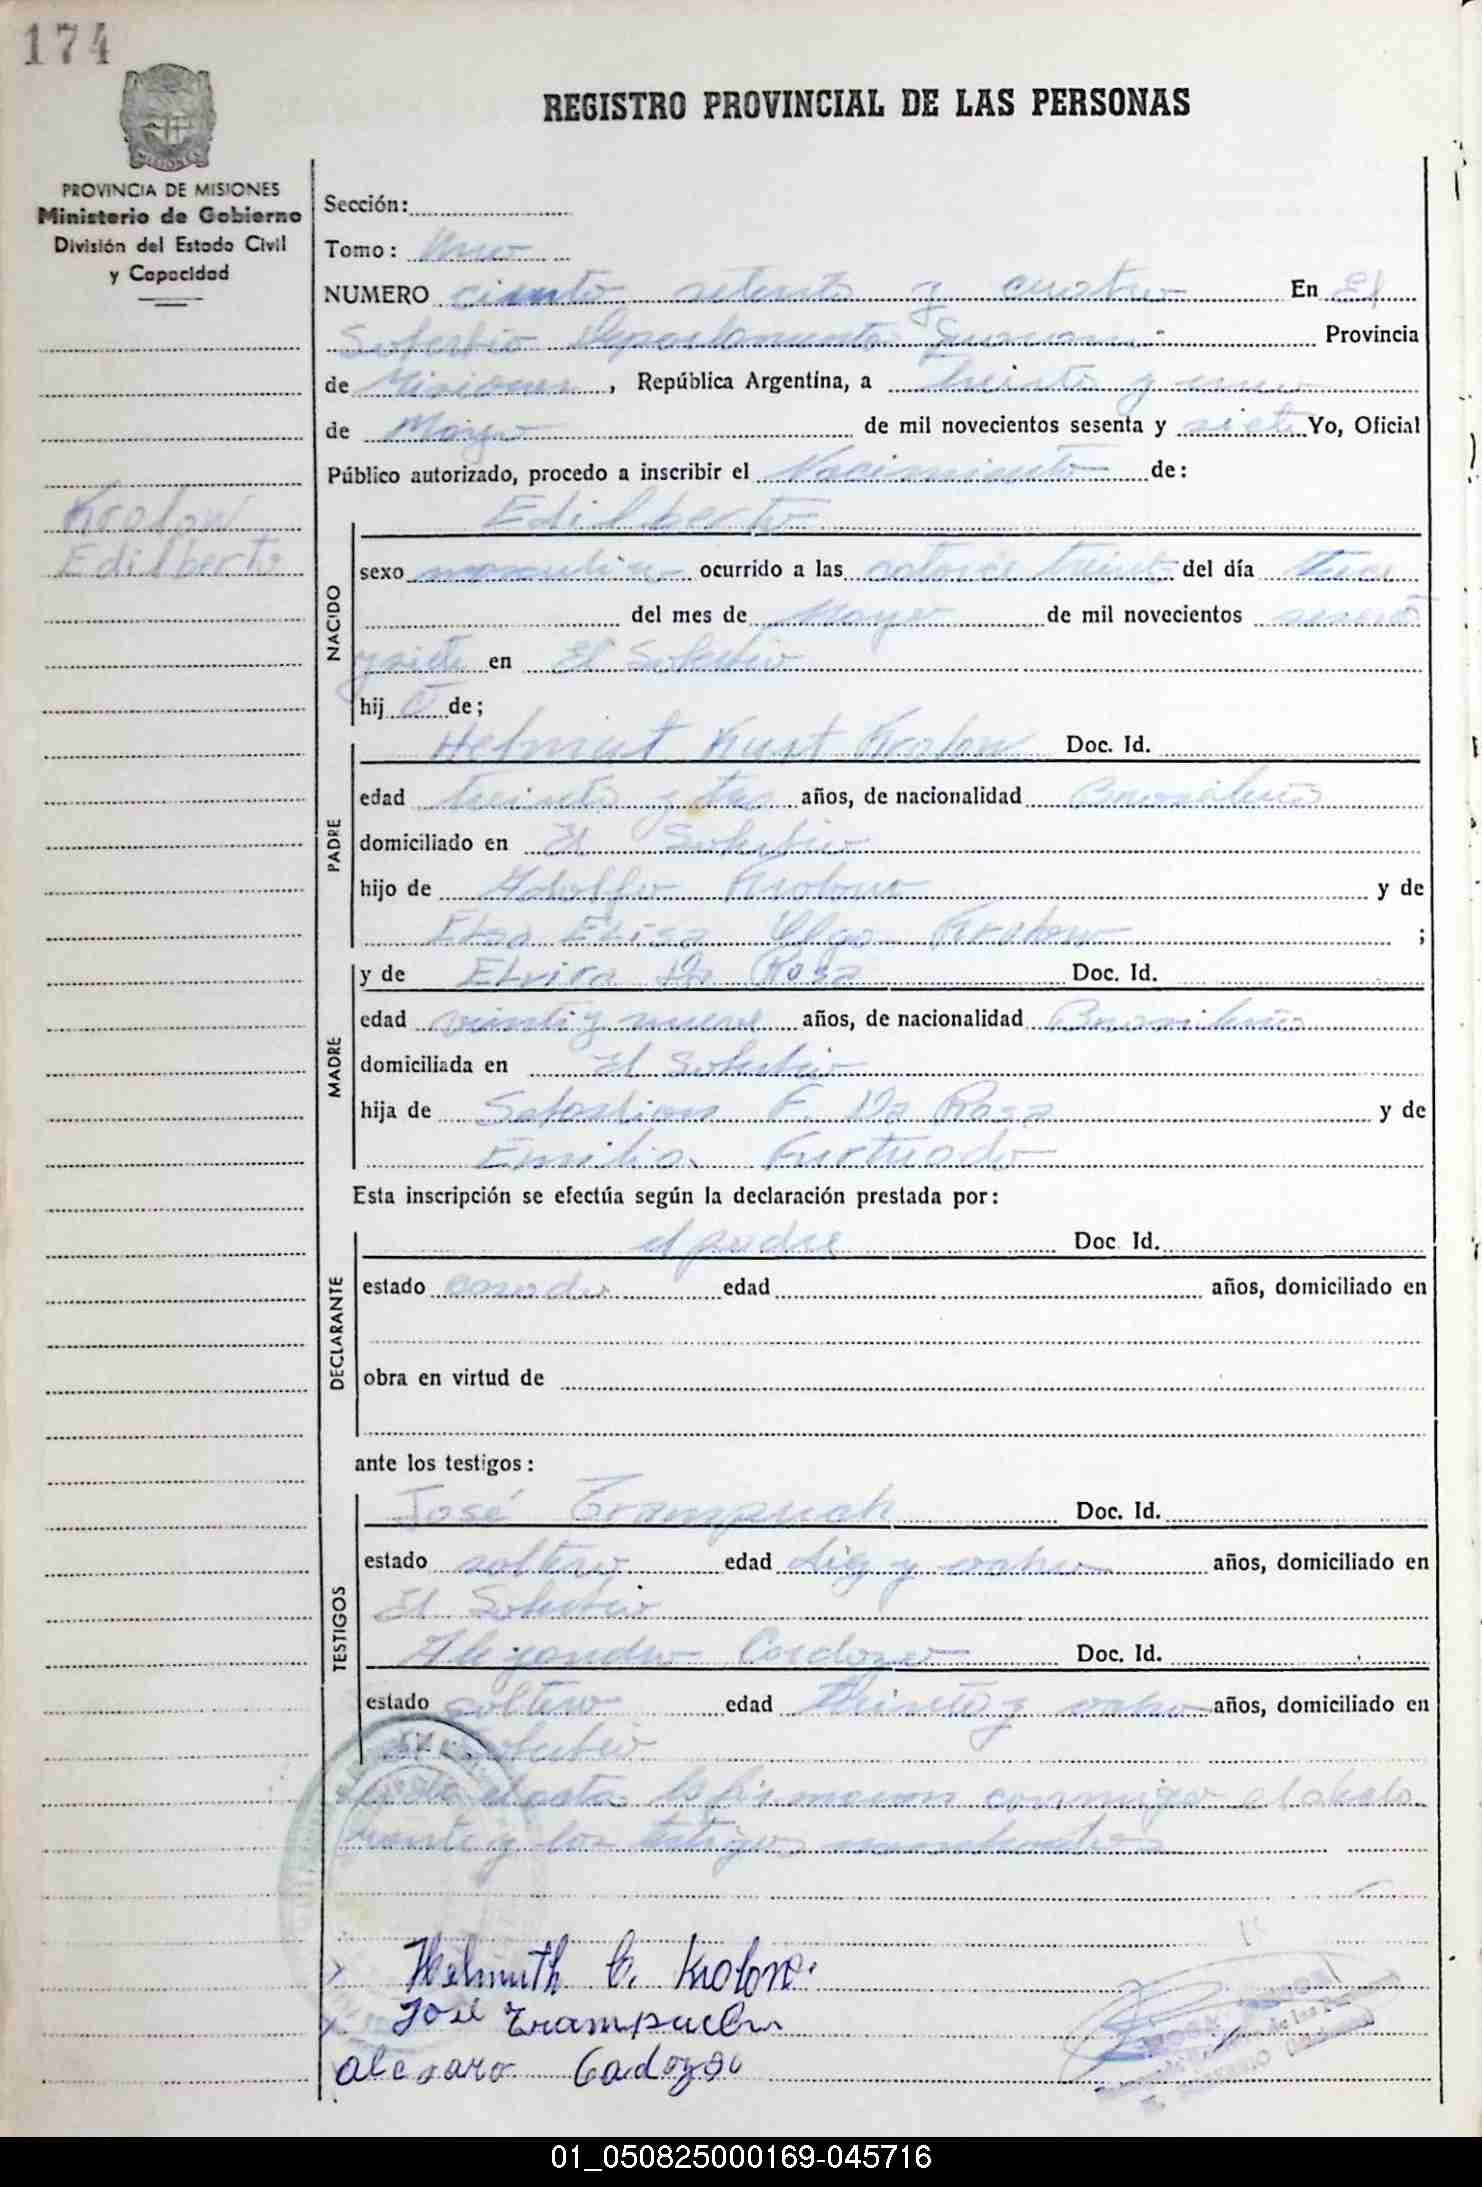 174
REGISTRO PROVINCIAL DE LAS PERSONAS
MISIONES
PROVINCIA DE MISIONES
Ministerio de Gobierno
División del Estado Civil
y Capacidad
Krolow
Edilberto
Sección:
Tomo: Uno
NUMERO ciento setenta y cuatro En El
Soberbio Departamento Guarani Provincia
de Misiones, República Argentina, a Treinta y uno
de Mayo de mil novecientos sesenta y siete Yo, Oficial
Público autorizado, procedo a inscribir el Nacimiento de:
NACIDO
Edilberto
sexo masculino ocurrido a las catorce treinta del día
del mes de Mayo de mil novecientos sesenta
y siete en El Soberbio
hijo de;
PADRE
Helmut Kurt Krolow Doc. Id.
edad treinta y tres años, de nacionalidad Brasileña
domiciliado en El Soberbio
hijo de Adolfo Krolow y de
Elsa Elisa Krolow ;
MADRE
y de Elvira Da Rosa Doc. Id.
edad veinti y nueve años, de nacionalidad Brasileña
domiciliada en El Soberbio
hija de Sebastian F. Da Rosa y de
Emilia Furtuado
Esta inscripción se efectúa según la declaración prestada por:
DECLARANTE
el padre Doc Id.
estado casado edad años, domiciliado en
obra en virtud de
ante los testigos:
TESTIGOS
José Trampuch Doc. Id.
estado soltero edad diez y ocho años, domiciliado en
El Soberbio
Alejandro Cardozo Doc. Id.
estado soltero edad treinta y ocho años, domiciliado en
El Soberbio
el acta la firmaron conmigo el decla
rante y los testigos
Helmuth C. Krolow
José Trampuch
Alejaro Cadozo
01_050825000169-045716